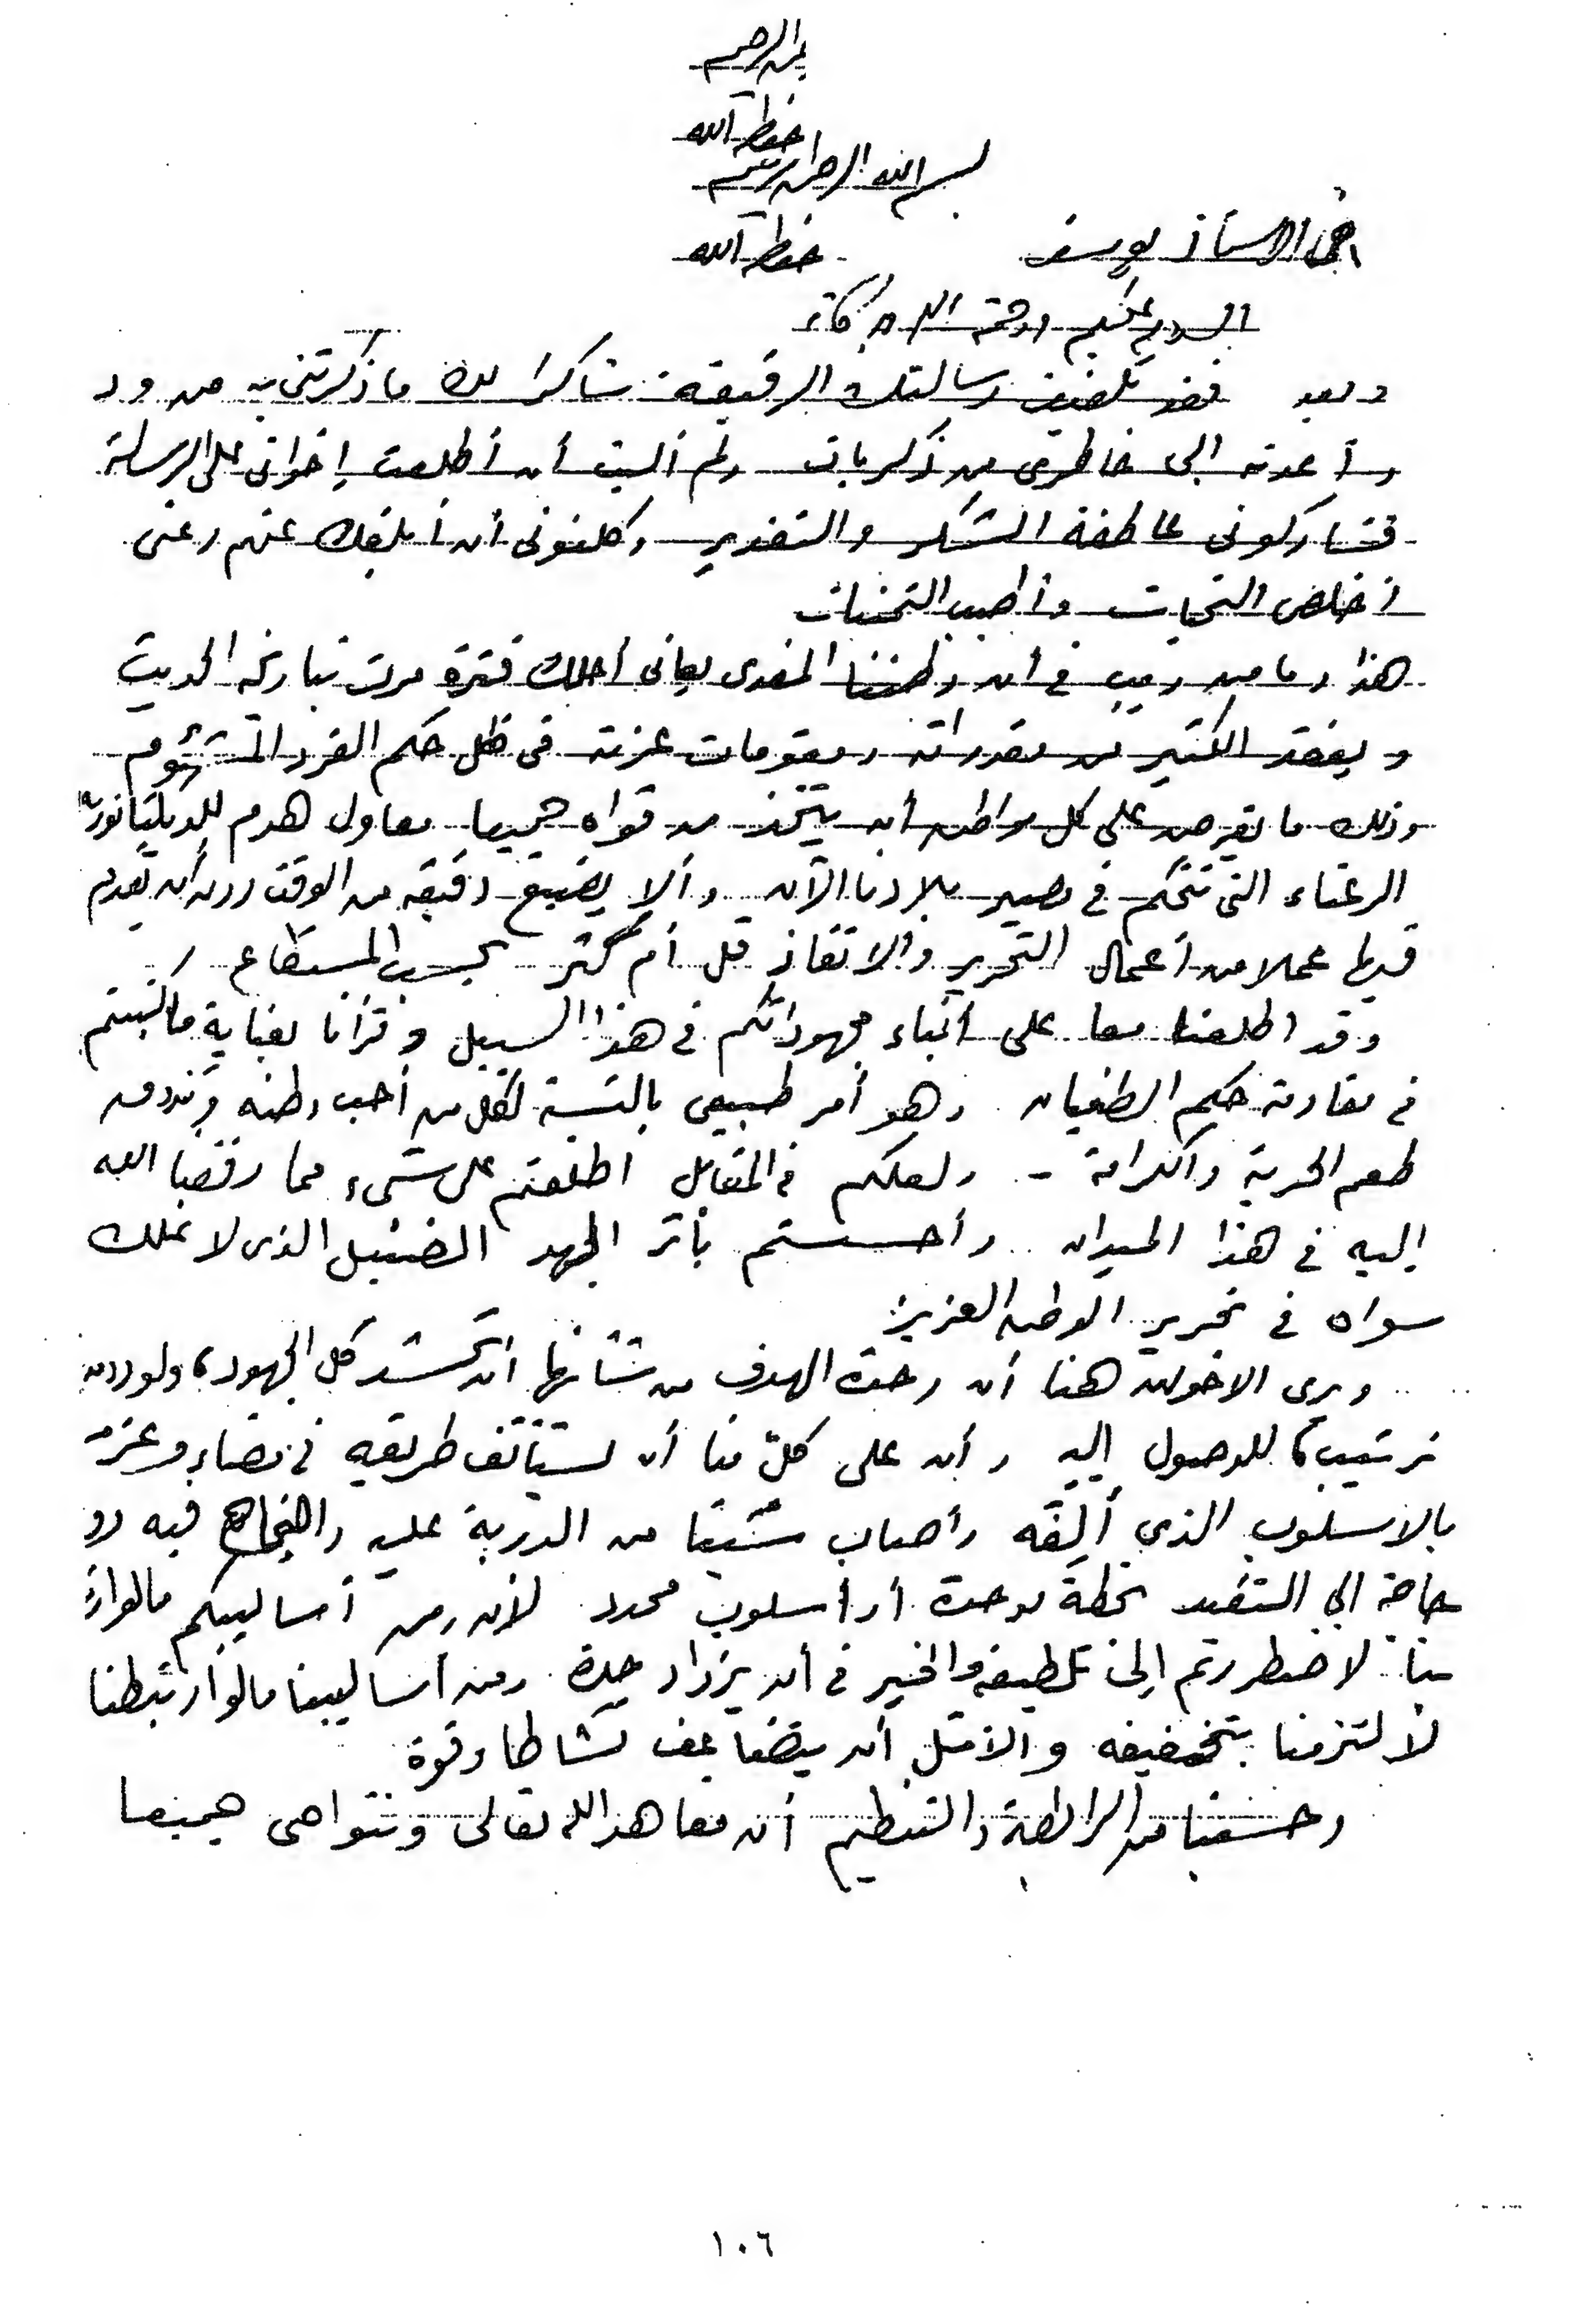 من الرحيم
حفظه الله
بسم الله الرحمن الرحيم
أخى الاستاذ يوسف حفظه الله
السلام عليكم ورحمة الله وبركاته
وبعد فقد تلقيت رسالتك الرقيقة شاكرا لك ما ذكرتنى به من ود
وأعدته الى خاطرى من ذكريات ولم ألبث أن أطلعت إخوانى على الرسالة
فشاركونى عاطفة الشكر والتقدير وكلفونى أن أبلغك عنهم وعنى
أخلص التحيات وأطيب التمنيات
هذا وما من ريب فى أن وطننا المفدى يعانى أحلك فترة مرت بتاريخه الحديث
ويفقد الكثير من مقدراته ومقومات عزته فى ظل حكم الفرد المشئوم
وذلك ما يفرض على كل مواطن أن يتخذ من قواه جميعا معاول هدم للديكتاتورية
الرعناء التى تتحكم فى مصير بلادنا الآن وألا يضيع دقيقة من الوقت دون أن يقدم
فيها عملا من أعمال التحرير والانقاذ قل أم كثر بحسب المستطاع
وقد اطلعنا معا على أنباء مجهوداتكم فى هذا السبيل وقرأنا بعناية ما كتبتم
فى مقاومة حكم الطغيان وهو أمر طبيعى بالنسبة لكل من أحب وطنه وتذوق
طعم الحرية والكرامة - ولعلكم فى المقابل اطلعتم على شىء مما وفقنا الله
إليه فى هذا الميدان وأحسستم بأثر الجهد الضئيل الذى لا نملك
سواه فى تحرير الوطن العزيز
ويرى الاخوان هنا أن وحدة الهدف من شأنها أن تحشد كل الجهود، ولو دون
ترتيب، للوصول إليه وأن على كلّ منا أن يستأنف طريقه فى مضاء وعزم
بالاسلوب الذى ألفه وأصاب شيئا من الدربة عليه والنجاح فيه دو
حاجة إلى التقيد بخطة موحدة أو أسلوب محدد لأن من أساليبكم ما لو ارتبطتم
بنا لاضطررتم إلى تلطيفه والخير فى أن يزداد حدة ومن أساليبنا ما لو ارتبطنا
لالتزمنا بتخفيفه والأمثل أن يتضاعف نشاطا وقوة
وحسبنا من الرابطة والتنظيم أن نعاهد الله تعالى ونتواصى جميعا
١٠٦